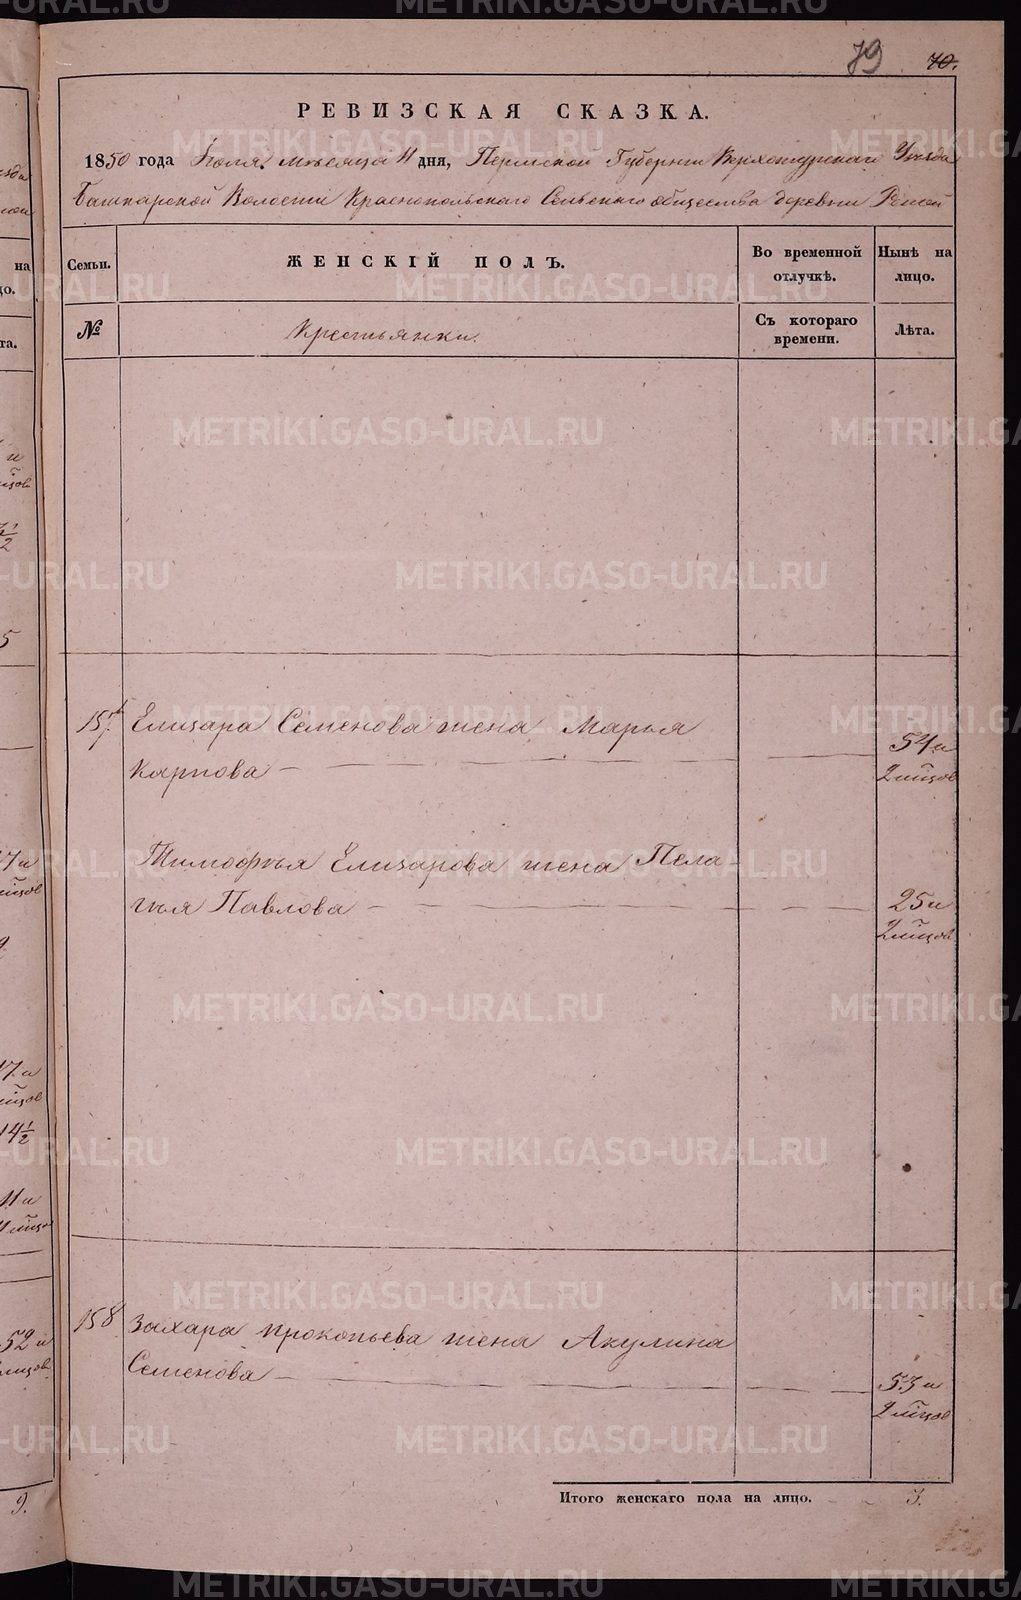 79 70.
РЕВИЗСКАЯ СКАЗКА.
1850 года Іюля мѣсяца 11 дня, Пермской Губерніи Верхотурскаго Уѣзда
Башкарской Волости Краснопольскаго Сельскаго общества деревни
Семьи. ЖЕНСКІЙ ПОЛЪ. Во временной отлучкѣ. Нынѣ на лицо.
№ Крестьянки. Съ котораго времени. Лѣта.
157. Елизара Семенова жена Марья
Карпова — 54 и
2 мцов
Тимофѣя Елизарова жена Пела-
гѣя Павлова — 25 и
2 мцов
158 Захара Прокопьева жена Акулина
Семенова — 53 и
2 мцов
Итого женскаго пола на лицо. 3.
METRIKI.GASO-URAL.RU